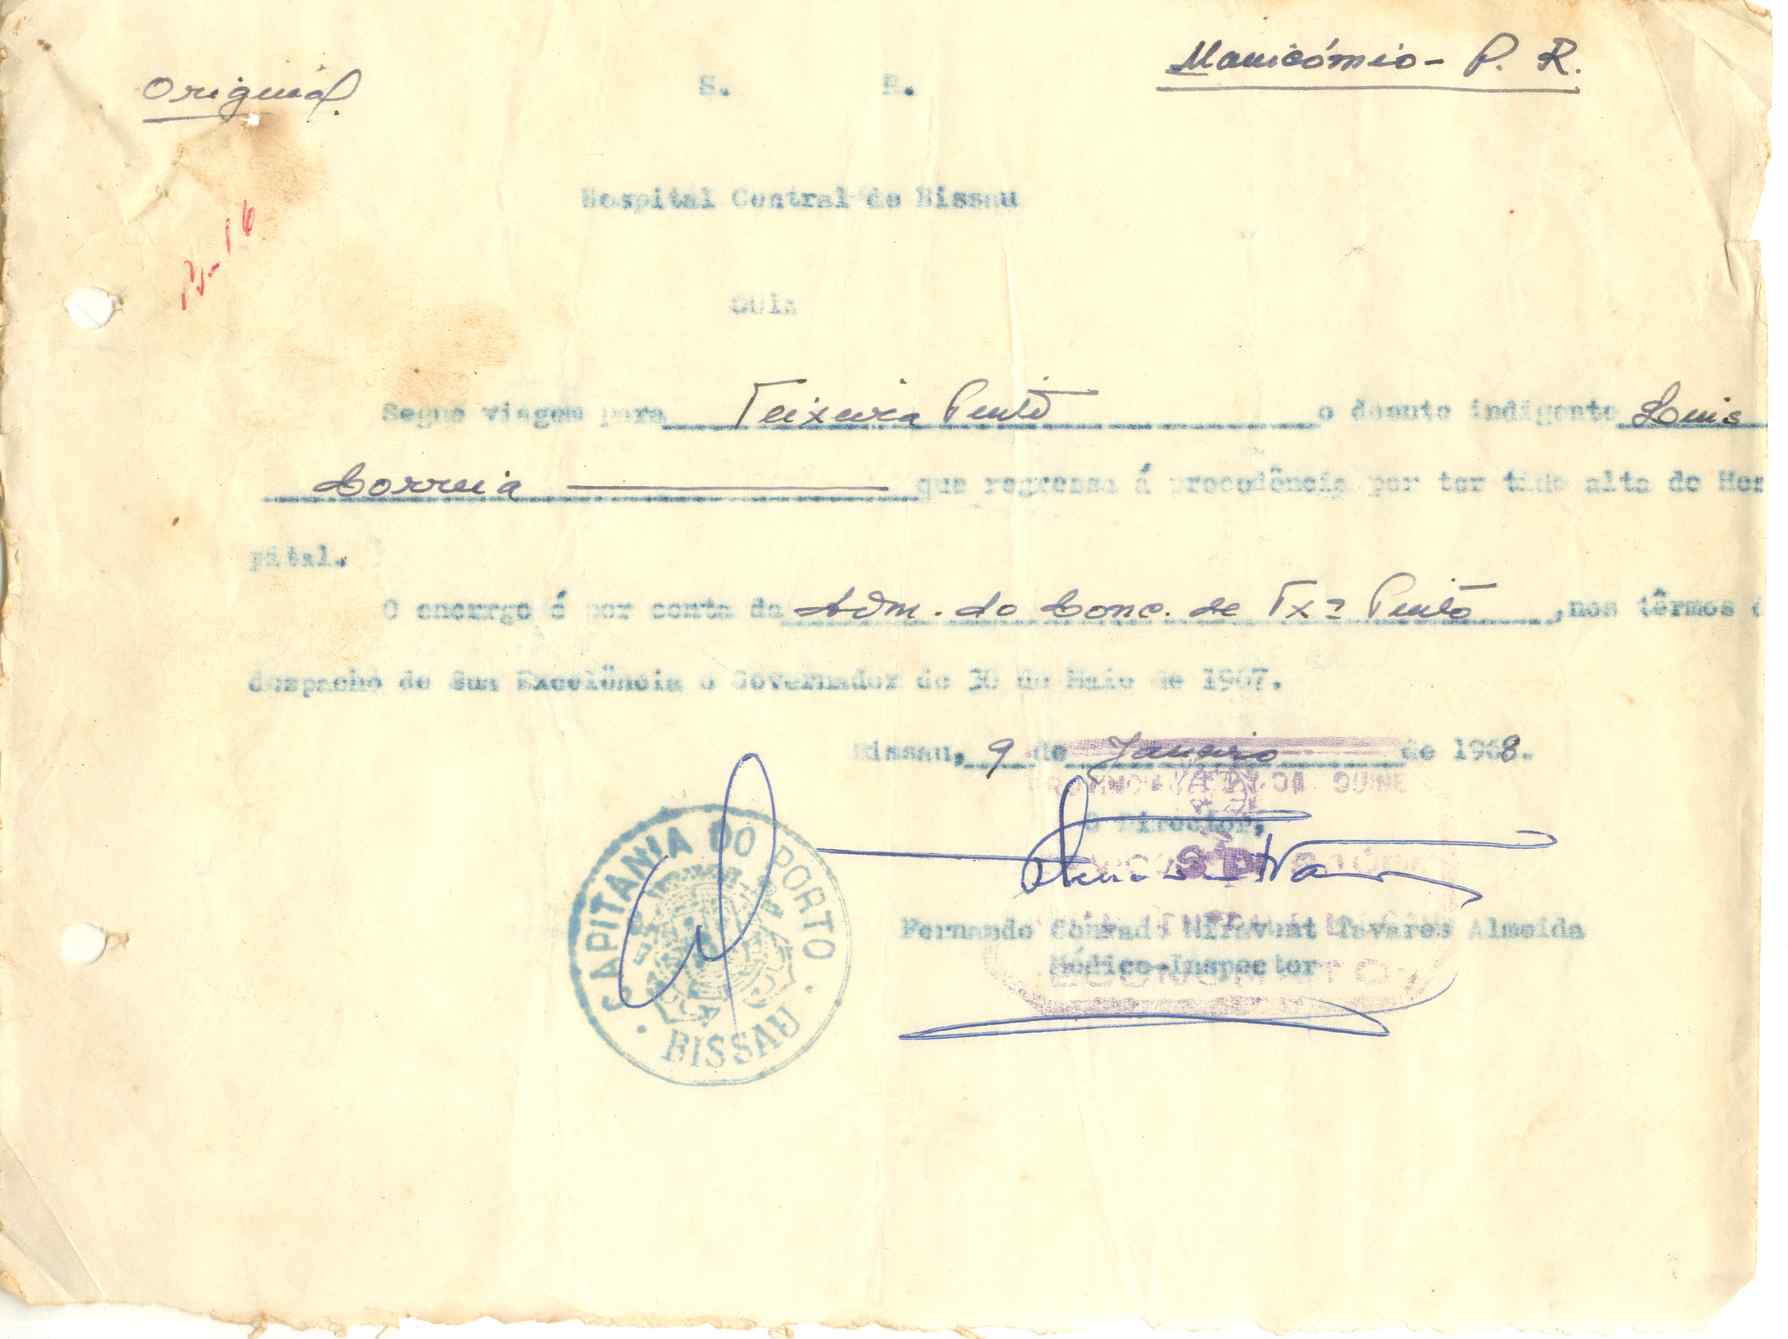 Original.
S. R.
Manicómio - P. R.
Hospital Central de Bissau
Guia
Segue viagem para Teixeira Pinto o doente indigente Luis
Correia que regressa á procedência por ter tido alta do Hos
pital.
O encargo é por conta da Adm. do Conc. de Txª Pinto, nos têrmos
despacho de Sua Excelência o Governador de 30 de Maio de 1967.
Bissau, 9 de Janeiro de 1968.
O Director,
Fernando Conrado Miravent Tavares Almeida
Médico-Inspector
CAPITANIA DO PORTO
BISSAU